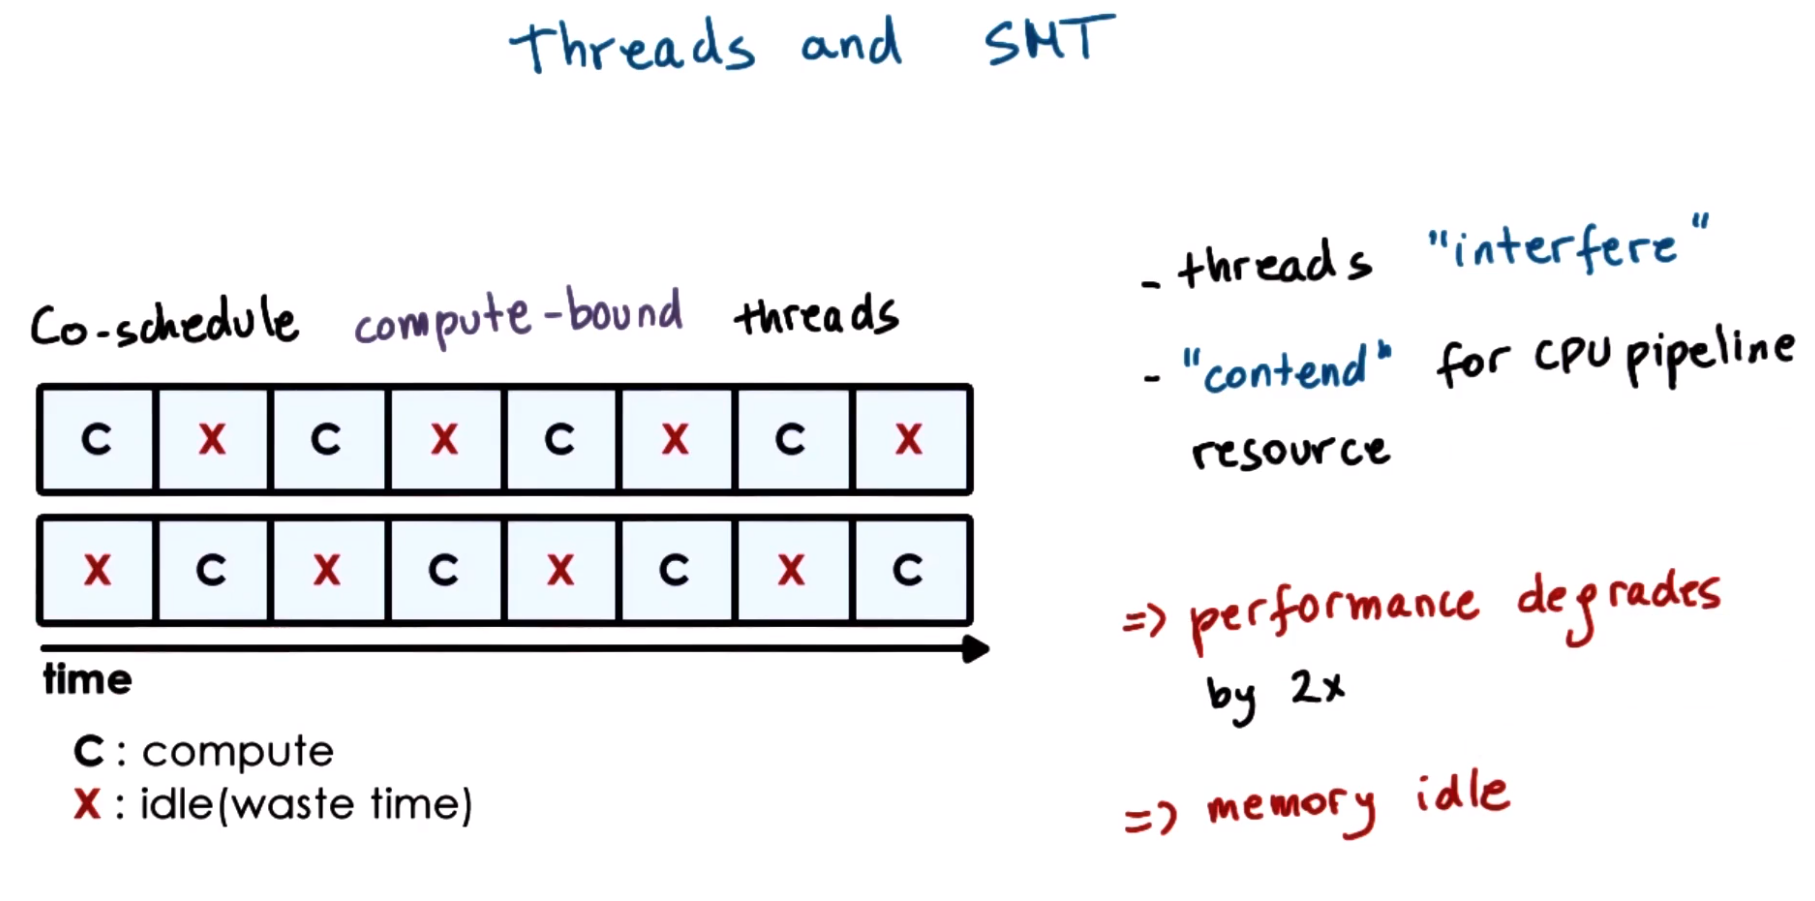 Threads and SMT
Co-schedule compute-bound threads
C X C X C X C X
X C X C X C X C
time
C : compute
X : idle(waste time)
- threads "interfere"
- "contend" for CPU pipeline
resource
=> performance degrades
by 2x
=> memory idle